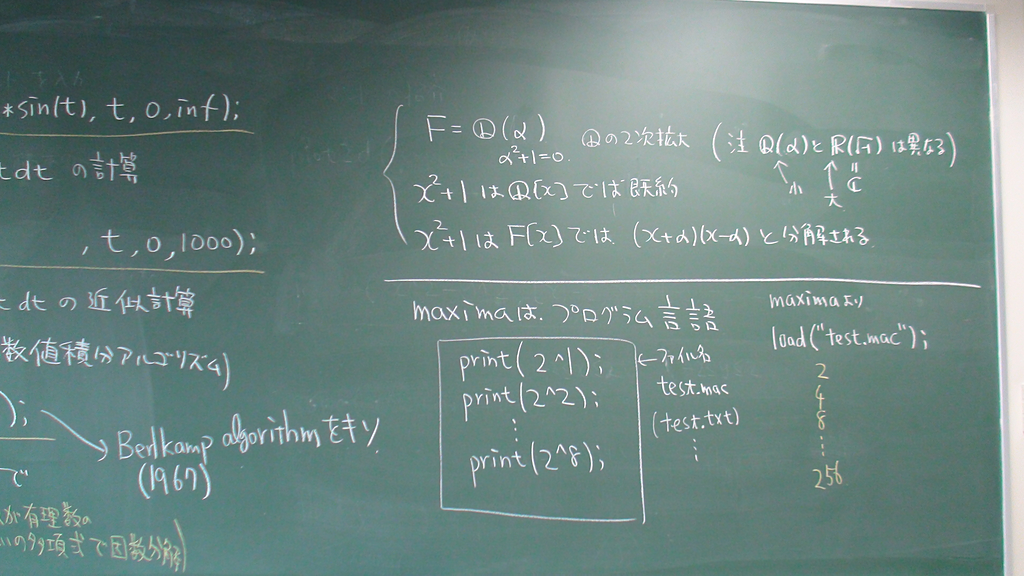 *sin(t), t, 0, inf);
tdt の計算
, t, 0, 1000);
tdt の近似計算
数値積分アルゴリズム)
);
Berlkamp algorithm
(1967)
で
が有理数の
の多項式で因数分解)
F = ℚ(α) ℚの2次拡大 (注 ℚ(α)とℝ(√-1)は異なる)
α²+1=0.
小 大 ℂ
x²+1 は ℚ[x] では既約
x²+1 は F[x] では (x+α)(x-α) と分解される
maximaは プログラム言語
print(2^1);
print(2^2);
⋮
print(2^8);
←ファイル名
test.mac
(test.txt)
⋮
maximaより
load("test.mac");
2
4
8
⋮
256